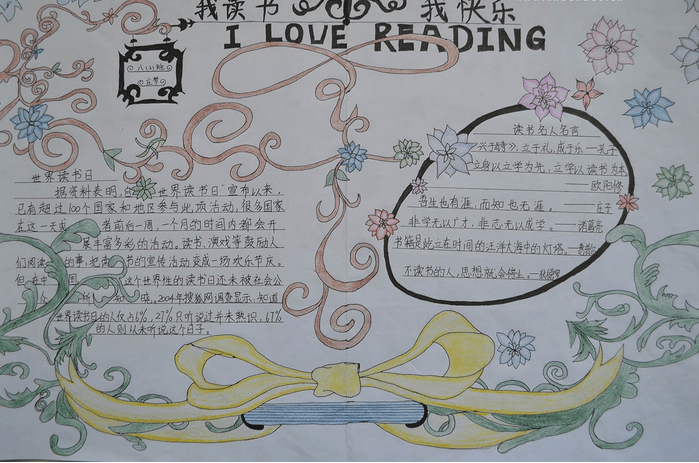 我读书 我快乐
I LOVE READING
八(2)班
世界读书日
据资料表明,自"世界读书日"宣布以来,
已有超过100个国家和地区参与此项活动,很多国家
在这一天或者前后一周,一个月的时间内都会开
展丰富多彩的活动。读书、演戏等鼓励人
们阅读的事,把读书的宣传活动变成一场欢乐节庆。
但在中国,这个世界性的读书日还未被社会公
2004年搜狐网调查显示,知道
世界读书日的人仅占6%,27%只听说过并未熟识,67%
的人则从未听说这个日子。
读书名人名言
兴于《诗》,立于礼,成于乐——孔子
立身以立学为先,立学以读书为本
——欧阳修
吾生也有涯,而知也无涯。——庄子
非学无以广才,非志无以成学。——诸葛亮
书籍是屹立在时间的汪洋大海中的灯塔。
不读书的人,思想就会停止。